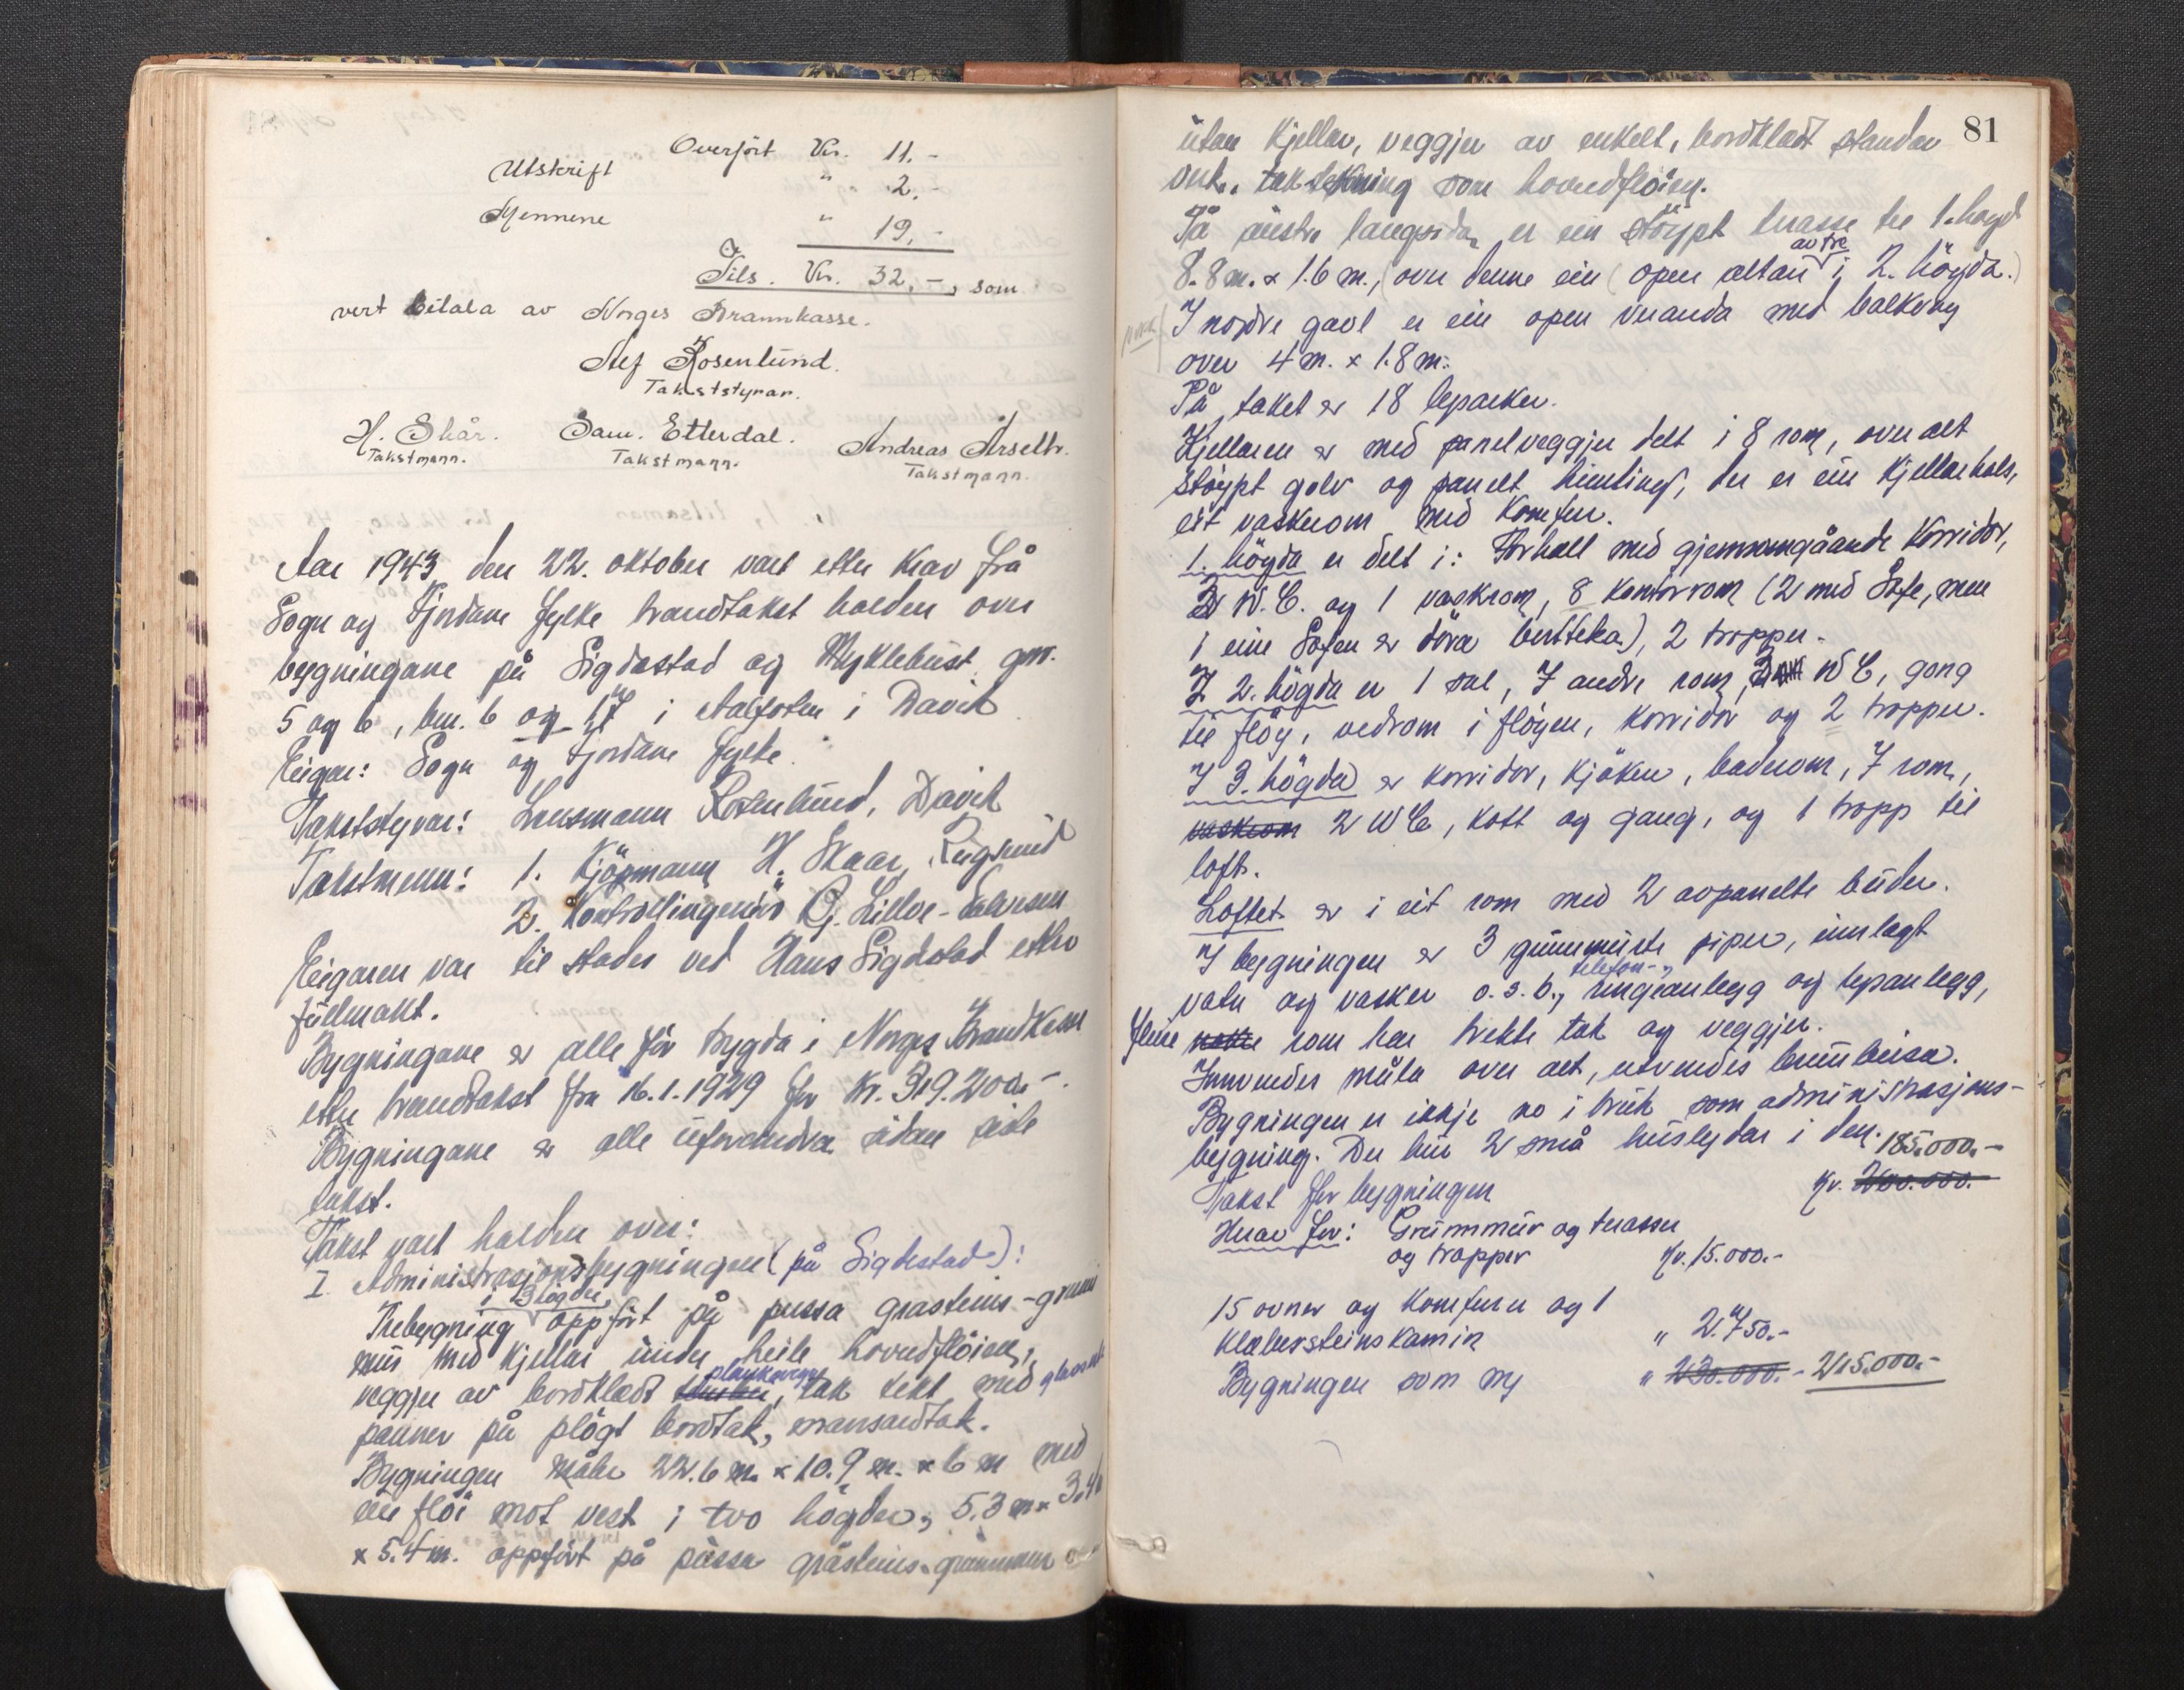 Overført Kr. 11.-
Utskrift " 2.-
Mennene " 19,-
Tils. Kr. 32,-, som
vert bitala av Norges Brannkasse.
Alf Rosenlund.
Takststyrar.
H. Skår. Sam. Etterdal. Andreas
Takstmann. Takstmann. Takstmann.
Aar 1943 den 22. oktober vart etter krav frå
Sogn og Fjordane fylke brandtakst halden over
bygningane på Sigdastad og Myklebust gnr.
5 og 6, bnr. 6 og 17 i Aalfoten i Davik
Eigar: Sogn og Fjordane fylke.
Takststyrar: Lensmann Rosenlund, Davik
Takstmenn: 1. Kjöpmann H. Skaar, Rugsund
2. Kontrollingeniör Lillve-Salvesen
Eigaren var til stades ved Hans Sigdestad etter
fullmakt.
Bygningane er alle för trygda i Norges Brandkasse
etter brandtakst fra 16.1.1929 for kr. 319.200.-
Bygningane er alle uforandra sidan siste
takst.
Takst vart halden over:
I Administrasjonsbygningen (på Sigdestad):
i 3 högder
Trebygning oppfört på pussa grasteins-grunn
mur med kjellar under heile hovudflöien,
plankevegg
veggjer av bordkledt , tak tekt med glaserte
panner på plögt bordtak, mansardtak.
Bygningen måler 22.6 m. x 10.9 m. x 6 m med
ein flöi mot vest i tvo högder, 5.3 m x 3.4
x 5.4 m. oppfört på pussa gråsteins-grunnmur
81
utan kjellar, veggjer av enkelt, bordkledt standar
verk, taktekning som hovudflöien.
På austre langsida er ein stöypt terasse til 1. høgd
av tre
8.8 m. x 1.6 m., (over denne ein (open altan i 2. högda.)
I nordre gavl er ein open veranda med balkong
over 4 m. x 1.8 m.
På taket er 18 leparker.
Kjellaren er med panelveggjer delt i 8 rom, over alt
stöypt golv og panelt himling, der er ein kjellarhals,
eit vaskerom med komfur.
1. högda er delt i: Forhall med gjennomgåande korridor,
2 W.C. og 1 vaskrom, 8 kontorrom (2 med Safe, men
i eine Safen er döra bortteka), 2 tropper.
I 2. högda er 1 sal, 7 andre rom, 2 WC, gong
til flöy, vedrom i flöyen, korridor og 2 tropper.
I 3. högda er korridor, kjöken, baderom, 7 rom,
vaskrom 2 WC, kott og gang, og 1 tropp til
loft.
Loftet er i eit rom med 2 avpanelte buder.
I bygningen er 3 gjennmurte piper, innlagt
telefon-,
vatn og vasker o.s.b., ringeanlegg og lepanlegg,
fleire nokre rom har trekte tak og veggjer.
Innvendes måla over alt, utvendes brunbeisa.
Bygningen er ikkje no i bruk som administrasjons-
bygning. Der bur 2 små huslydar i den.
185.000.-
Takst for bygningen kr. 200.000.-
Herav for: Grunnmur og terasser
og trapper kr. 15.000.-
15 ovner og komfurer og 1
klebersteins kamin " 2.750.-
Bygningen som ny " 230.000.- 215.000.-